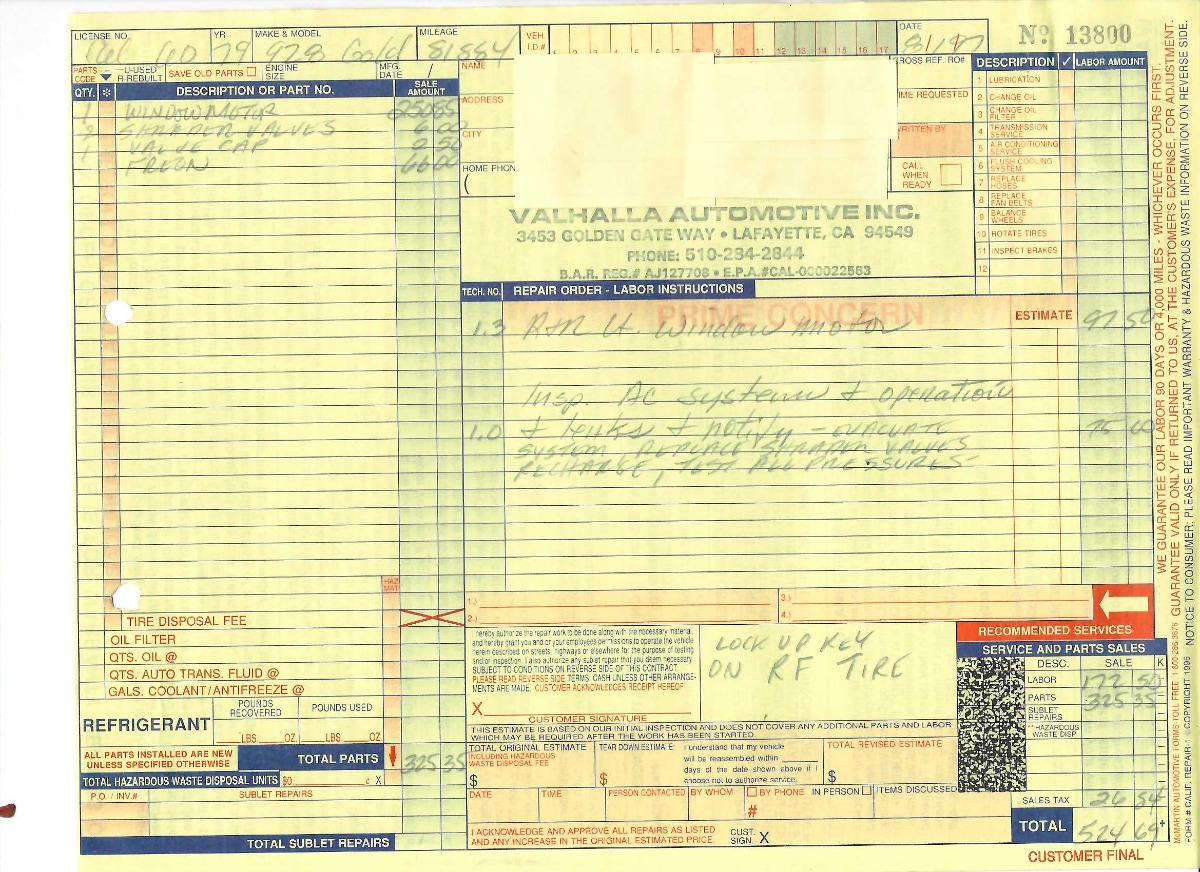 LICENSE NO. YR MAKE & MODEL MILEAGE VEH. I.D.# 1 2 3 4 5 6 7 8 9 10 11 12 13 14 15 16 17 DATE Nº 13800
Rel GD 79 928 Gold 81884 8/1/97
PARTS CODE U-USED R-REBUILT SAVE OLD PARTS ENGINE SIZE MFG. DATE /
QTY. * DESCRIPTION OR PART NO. SALE AMOUNT
1 WINDOW MOTOR 250 85
2 SHRADER VALVES 6 00
1 VALVE CAP 2 50
FREON 66 00
NAME
ADDRESS
CITY
HOME PHON
(
ROSS REF. RO#
IME REQUESTED
RITTEN BY
CALL WHEN READY
DESCRIPTION ✓ LABOR AMOUNT
1 LUBRICATION
2 CHANGE OIL
3 CHANGE OIL FILTER
4 TRANSMISSION SERVICE
5 AIR CONDITIONING SERVICE
6 FLUSH COOLING SYSTEM
7 REPLACE HOSES
8 REPLACE FAN BELTS
9 BALANCE WHEELS
10 ROTATE TIRES
11 INSPECT BRAKES
12
VALHALLA AUTOMOTIVE INC.
3453 GOLDEN GATE WAY • LAFAYETTE, CA 94549
PHONE: 510-284-2844
B.A.R. REG.# AJ127708 • E.P.A.#CAL-000022563
TECH. NO. REPAIR ORDER - LABOR INSTRUCTIONS
PRIME CONCERN
ESTIMATE
1.3 R&R Lt Window motor 97 50
Insp. AC system & operation
1.0 & leaks & notify - EVACUATE 75 00
SYSTEM, REPLACE SHRADER VALVES
RECHARGE, TEST ALL PRESSURES
HAZ MAT
TIRE DISPOSAL FEE
OIL FILTER
QTS. OIL @
QTS. AUTO TRANS. FLUID @
GALS. COOLANT/ANTIFREEZE @
REFRIGERANT POUNDS RECOVERED POUNDS USED
LBS OZ. LBS OZ
ALL PARTS INSTALLED ARE NEW UNLESS SPECIFIED OTHERWISE
TOTAL PARTS 325 35
TOTAL HAZARDOUS WASTE DISPOSAL UNITS $0 ¢ X
P.O. / INV.# SUBLET REPAIRS
TOTAL SUBLET REPAIRS
1.) 3.)
2.) 4.)
RECOMMENDED SERVICES
I hereby authorize the repair work to be done along with the necessary material
and hereby grant you and/or your employees permissions to operate the vehicle
herein described on streets, highways or elsewhere for the purpose of testing
and/or inspection. I also authorize any sublet repair that you deem necessary
SUBJECT TO CONDITIONS ON REVERSE SIDE OF THIS CONTRACT
PLEASE READ REVERSE SIDE TERMS: CASH UNLESS OTHER ARRANGE-
MENTS ARE MADE. CUSTOMER ACKNOWLEDGES RECEIPT HEREOF
X
CUSTOMER SIGNATURE
LOCK UP KEY
ON RF TIRE
THIS ESTIMATE IS BASED ON OUR INITIAL INSPECTION AND DOES NOT COVER ANY ADDITIONAL PARTS AND LABOR
WHICH MAY BE REQUIRED AFTER THE WORK HAS BEEN STARTED.
TOTAL ORIGINAL ESTIMATE INCLUDING HAZARDOUS WASTE DISPOSAL FEE $
TEAR DOWN ESTIMATE $
I understand that my vehicle
will be reassembled within
days of the date shown above if I
choose not to authorize service.
TOTAL REVISED ESTIMATE $
DATE TIME PERSON CONTACTED BY WHOM BY PHONE IN PERSON ITEMS DISCUSSED
#
I ACKNOWLEDGE AND APPROVE ALL REPAIRS AS LISTED
AND ANY INCREASE IN THE ORIGINAL ESTIMATED PRICE.
CUST. SIGN. X
SERVICE AND PARTS SALES
DESC. SALE K
LABOR 172 50
PARTS 325 35
SUBLET REPAIRS
**HAZARDOUS WASTE DISP.
SALES TAX 26 84
TOTAL 524 69
CUSTOMER FINAL
WE GUARANTEE OUR LABOR 90 DAYS OR 4,000 MILES - WHICHEVER OCCURS FIRST.
GUARANTEE VALID ONLY IF RETURNED TO US, AT THE CUSTOMER'S EXPENSE, FOR ADJUSTMENT.
McMARTIN AUTOMOTIVE FORMS - TOLL FREE 1-800-266-3676
NOTICE TO CONSUMER: PLEASE READ IMPORTANT WARRANTY & HAZARDOUS WASTE INFORMATION ON REVERSE SIDE.
FORM # CALIF. REPAIR-1 ©COPYRIGHT 1995